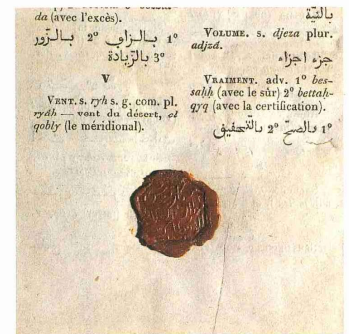 da (avec l'excès).
1º بالزاف 2º بالزور
3º بالزيادة
V
VENT. s. ryh s. g. com. pl.
ryâh — vent du désert, el
qobly (le méridional).
بالنية
VOLUME. s. djeza plur.
adjzâ.
جزء اجزاء
VRAIMENT. adv. 1º bes-
sahh (avec le sûr) 2º bettah-
qyq (avec la certification).
1º بالصح 2º بالتحقيق